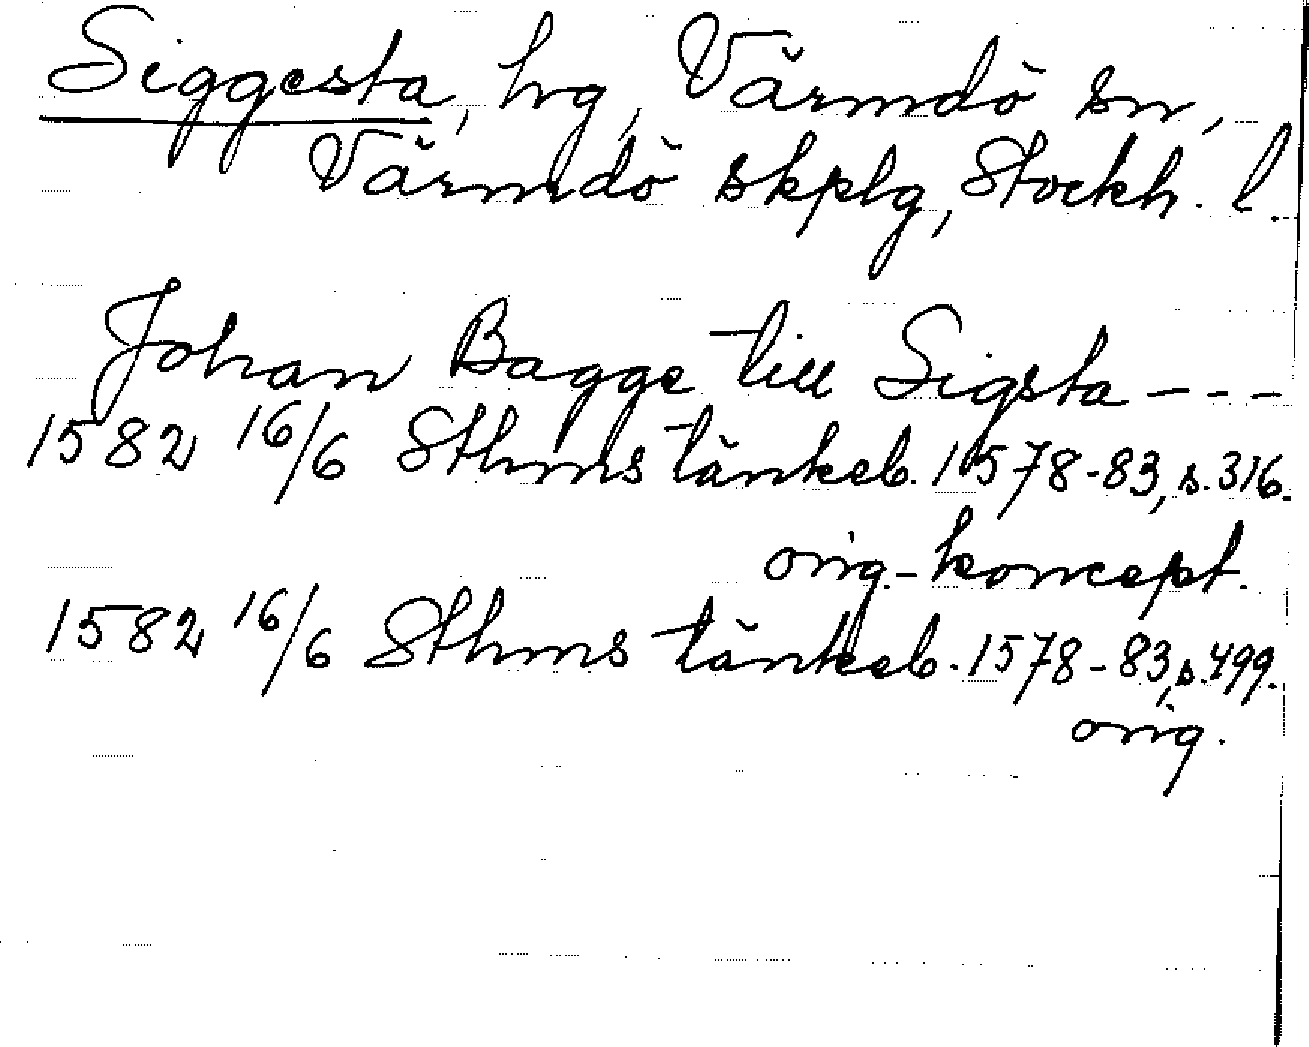 Siggesta, hg, Värmdö sn,
Värmdö skplg, Stockh. l.
Johan Bagge till Sigsta - - -
1582 16/6 Sthms tänkeb. 1578-83, s. 316.
orig.-koncept.
1582 16/6 Sthms tänkeb. 1578-83, s. 499.
orig.